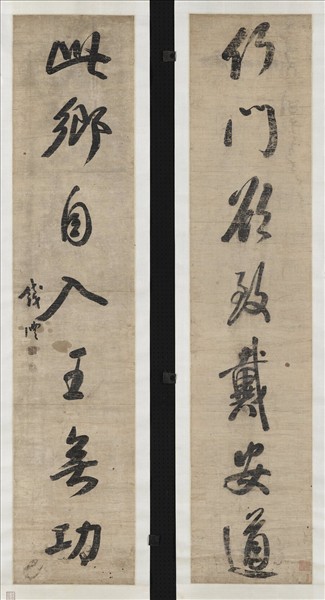 竹門欲致戴安道
此鄉自入王無功
錢